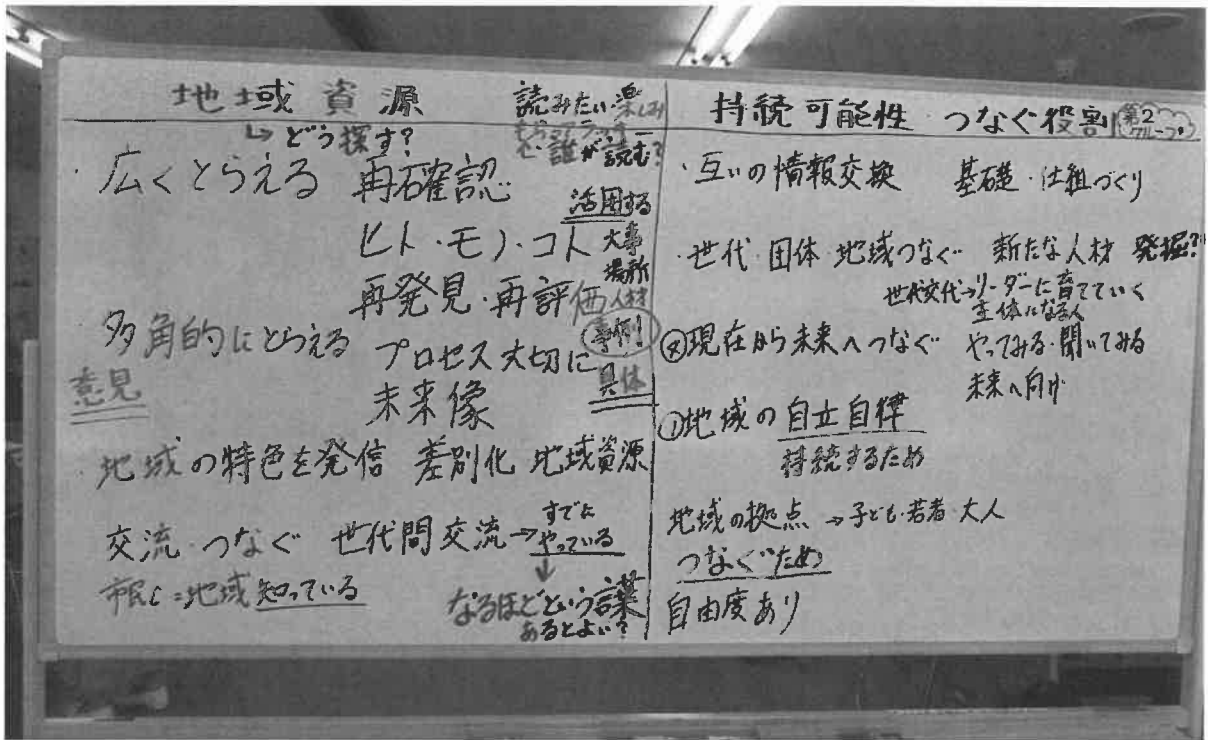 地域資源
↳どう探す?
読みたい・楽しみ
誰が読む?
・広くとらえる 再確認
活用する
ヒト・モノ・コト
大事
場所
人材
再発見・再評価
事例!
具体
多角的にとらえる
プロセス大切に
意見
未来像
・地域の特色を発信 差別化 地域資源
交流・つなぐ 世代間交流→すでにやっている
↓
市民C=地域知っている
なるほどという言葉
あるとよい?
持続可能性・つなぐ役割
第2グループ
・互いの情報交換 基礎・仕組づくり
・世代・団体・地域つなぐ 新たな人材 発掘?
世代交代→リーダーに育てていく
主体になる人
②現在から未来へつなぐ やってみる・聞いてみる
未来へ向け
①地域の自立自律
持続するため
地域の拠点→子ども・若者・大人
つなぐため
自由度あり